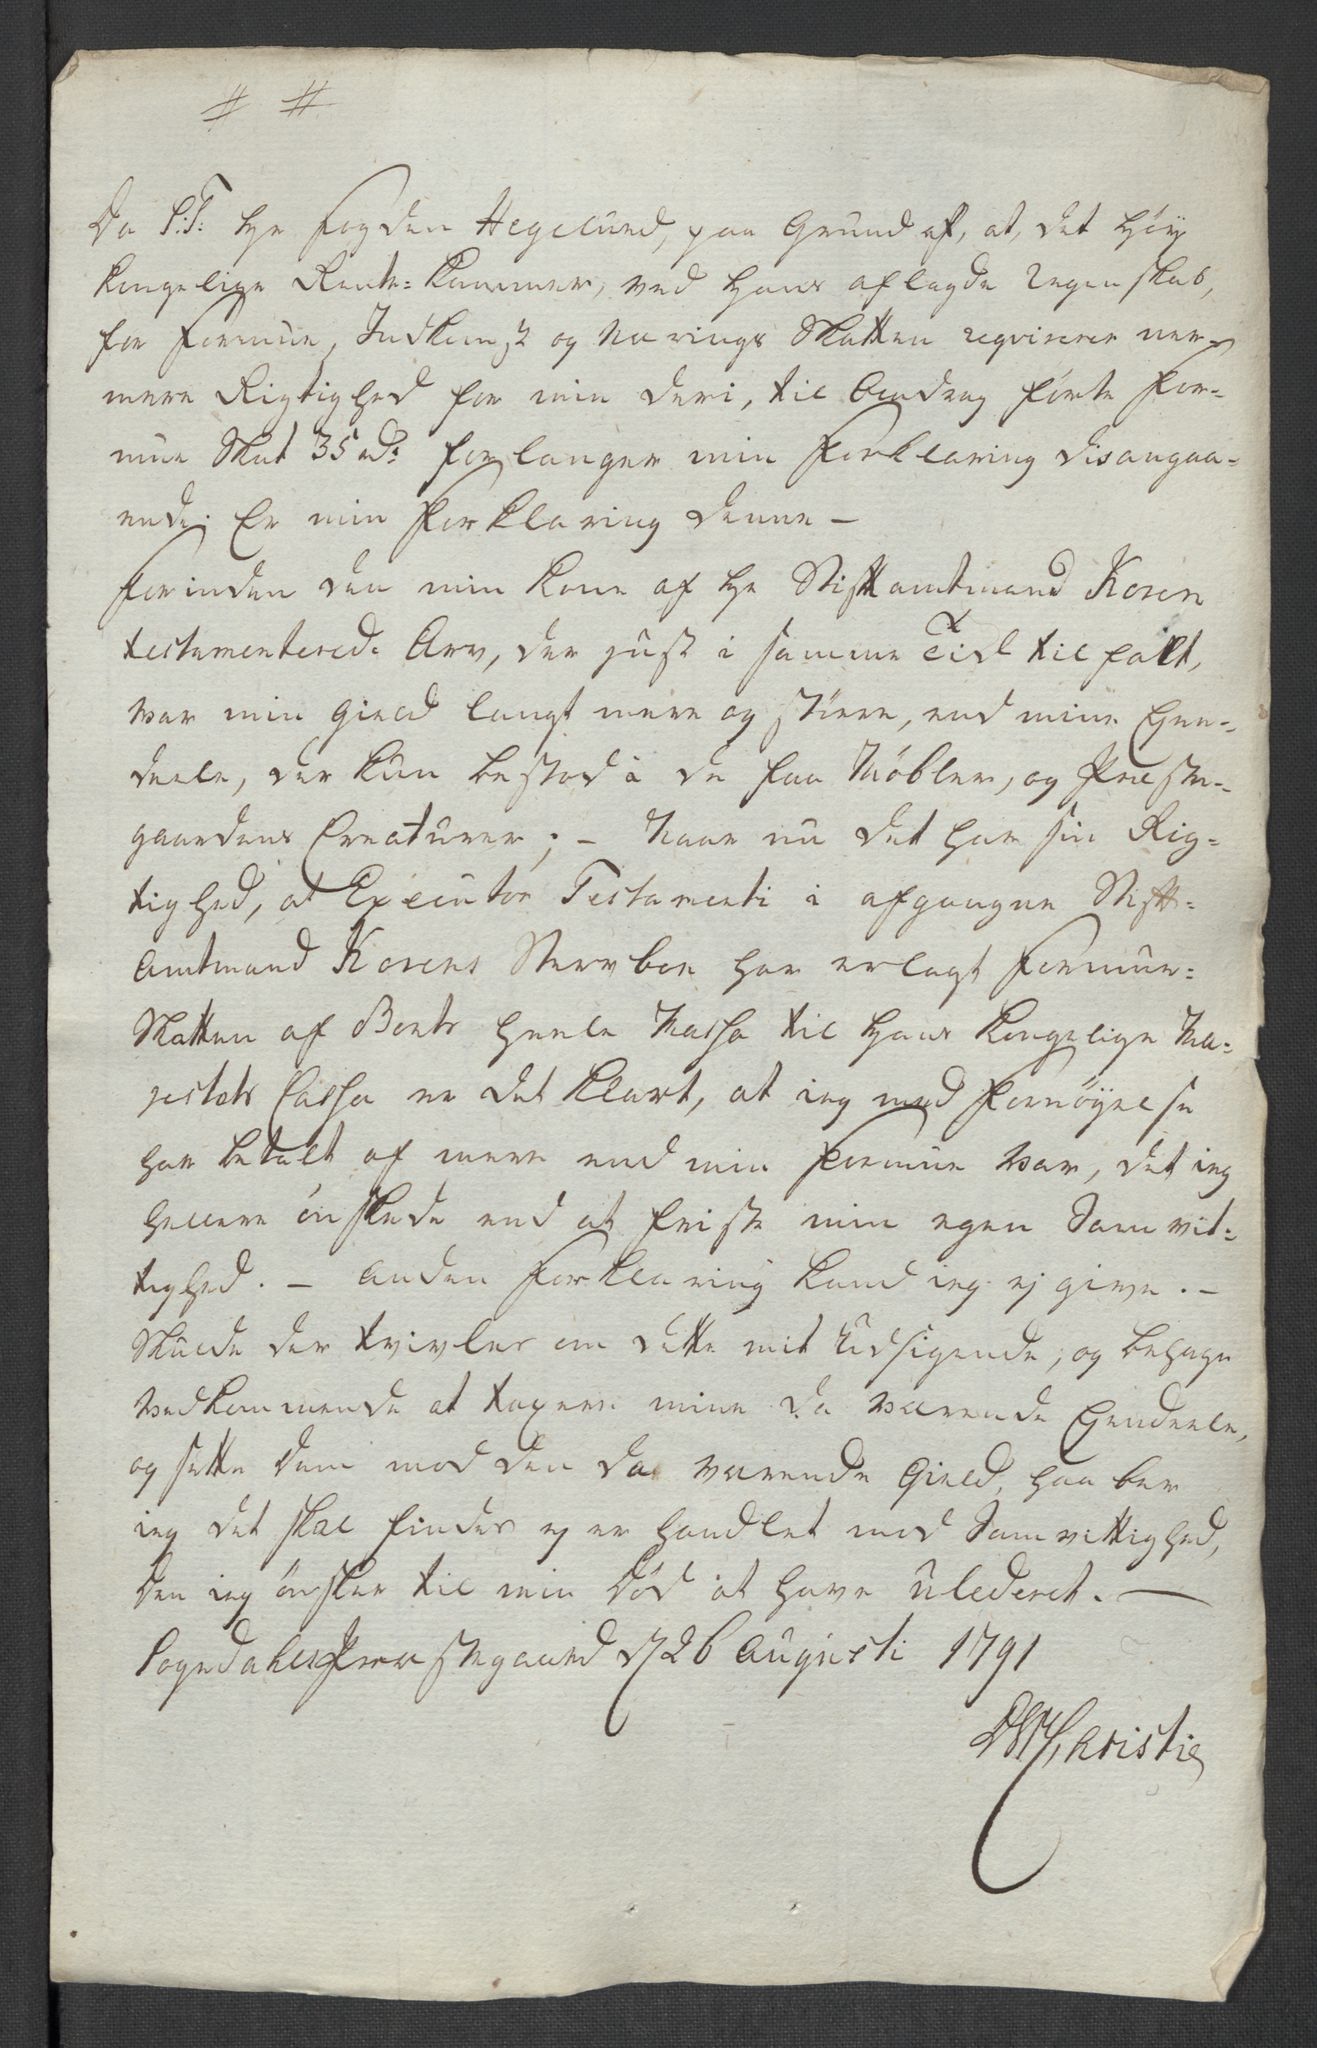 # #
Da S:T: Hr Fogden Hegelund, paa Grund af, at, det Høy
Kongelige Rente-Kammer, ved hans aflagde Regenskab,
for Formue, Indkomst og Nærings Skatten reqvirerer nær-
mere Rigtighed for min deri, til Andrag førte For-
mue Skat 35 rd: forlanger min Forklaring disangaa-
ende; Er min Forklaring denne —
Forinden den min Kone af Hr Stiftamtmand Koren
testamenterede Arv, der just i samme Tid tilfalt,
var min Gield langt mere og större, end mine Eien-
deele, der kun bestod i de faa Möbler, og Præste-
gaardens Creaturer; — Naar nu det har sin Rig-
tighed, at Executor Testamenti i afgangne Stift-
Amtmand Korens Stervboe har erlagt Formue-
Skatten af Boets heele Massa til Hans Kongelige Ma-
jestets Cassa er det klart, at ieg med Fornöyelse
har betalt af mere end min Formue var, det ieg
hellere önskede end at friste min egen Samvit-
tighed. — Anden Forklaring kand ieg ej give. —
Skulde der tvivles om dette mit Udsigende, og behage
Vedkommende at taxere mine da værende Eiendeele,
og sette dem mod den da værende Gield, haaber
ieg det skal findes ieg er handlet med Samvittighed,
den ieg önsker til min Död at have ulederet. —
Sogndahls Præstegaard d 26 Augusti 1791
Christie